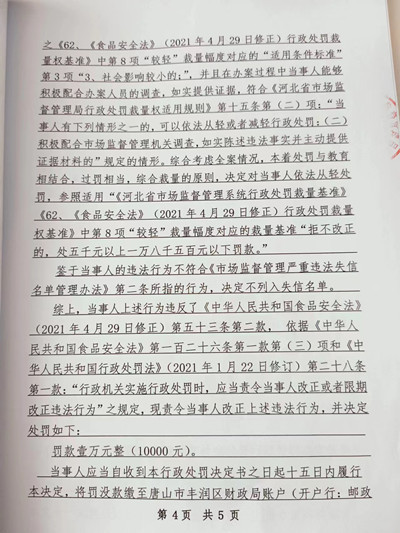 之《62、《食品安全法》（2021年4月29日修正）行政处罚裁
量权基准》中第8项“较轻”裁量幅度对应的“适用条件标准”
第3项“3、社会影响较小的;”，并且在办案过程中当事人能够
积极配合办案人员的调查，如实提供证据，符合《河北省市场监
督管理局行政处罚裁量权适用规则》第十五条第（二）项：“当
事人有下列情形之一的，可以依法从轻或者减轻行政处罚：（二）
积极配合市场监督管理机关调查，如实陈述违法事实并主动提供
证据材料的”规定的情形。综合考虑全案情况，本着处罚与教育
相结合，过罚相当，综合裁量的原则，决定对当事人依法从轻处
罚，参照适用“《河北省市场监督管理系统行政处罚裁量基准》
《62、《食品安全法》（2021年4月29日修正）行政处罚裁量
权基准》中第8项“较轻”裁量幅度对应的裁量基准“拒不改正
的，处五千元以上一万八千五百元以下罚款。”
鉴于当事人的违法行为不符合《市场监督管理严重违法失信
名单管理办法》第二条所指的行为，决定不列入失信名单。
综上，当事人上述行为违反了《中华人民共和国食品安全法》
（2021年4月29日修正）第五十三条第二款，依据《中华人
民共和国食品安全法》第一百二十六条第一款第（三）项和《中
华人民共和国行政处罚法》（2021年1月22日修订）第二十八条
第一款：“行政机关实施行政处罚时，应当责令当事人改正或者限期
改正违法行为”之规定，现责令当事人改正上述违法行为，并决定
处罚如下：
罚款壹万元整（10000元）。
当事人应当自收到本行政处罚决定书之日起十五日内履行
本决定，将罚没款缴至唐山市丰润区财政局账户（开户行：邮政
第4页 共5页